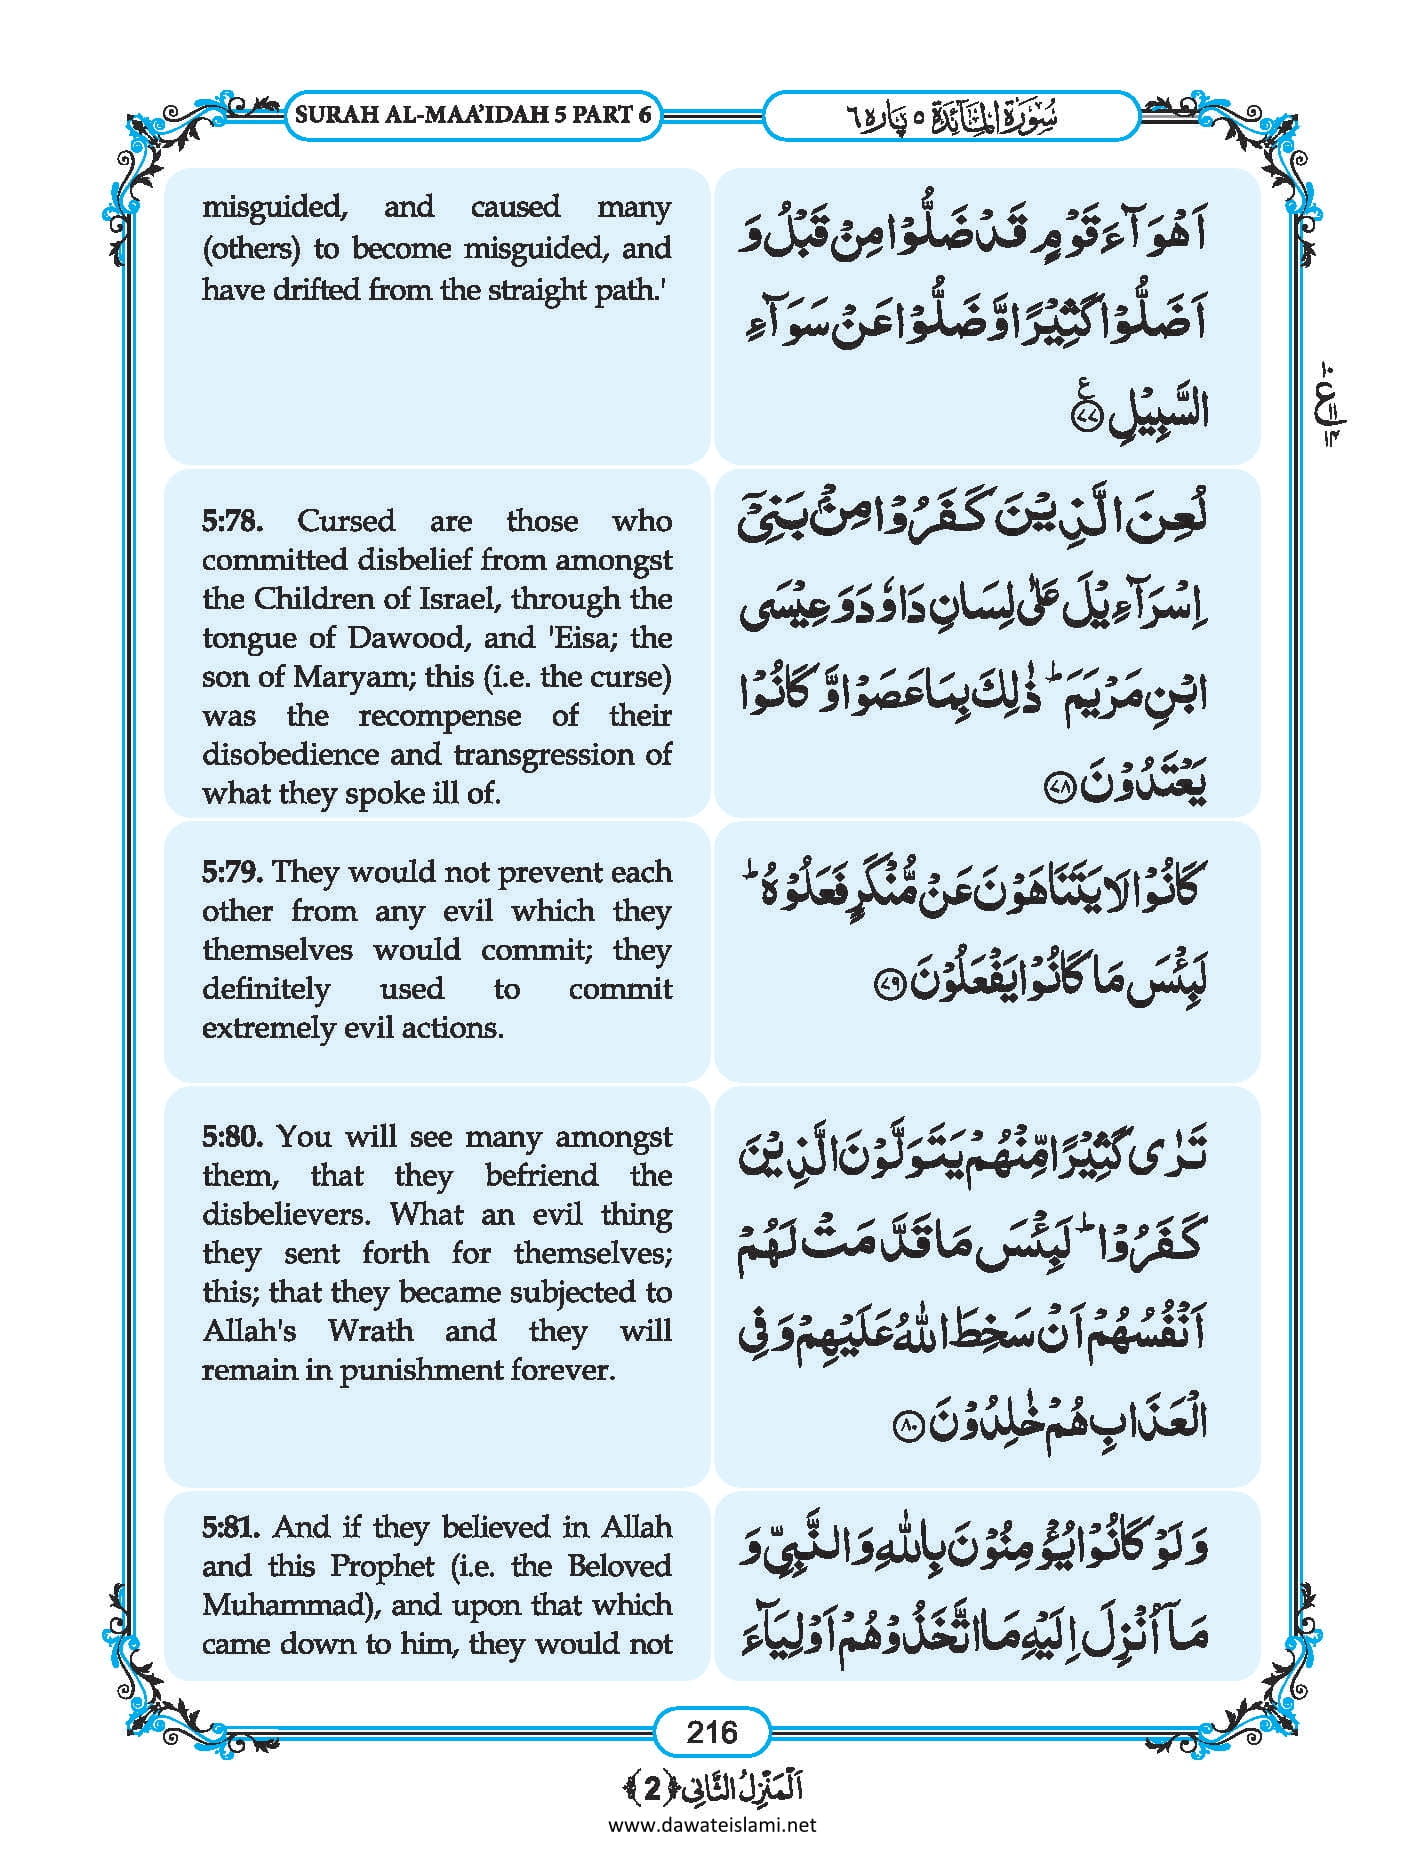 SURAH AL-MAA’IDAH 5 PART 6
سُوْرَةُ الْمَآئِدَة ٥ پَارَه ٦
misguided, and caused many
(others) to become misguided, and
have drifted from the straight path.'
اَهْوَآءَ قَوْمٍ قَدْ ضَلُّوْا مِنْ قَبْلُ وَ
اَضَلُّوْا كَثِیْرًا وَّ ضَلُّوْا عَنْ سَوَآءِ
السَّبِیْلِ۠ ﴿۷۷﴾
5:78. Cursed are those who
committed disbelief from amongst
the Children of Israel, through the
tongue of Dawood, and 'Eisa; the
son of Maryam; this (i.e. the curse)
was the recompense of their
disobedience and transgression of
what they spoke ill of.
لُعِنَ الَّذِیْنَ كَفَرُوْا مِنْۢ بَنِیْۤ
اِسْرَآءِیْلَ عَلٰى لِسَانِ دَاوٗدَ وَ عِیْسَى
ابْنِ مَرْیَمَؕ ذٰلِكَ بِمَا عَصَوْا وَّ كَانُوْا
یَعْتَدُوْنَ ﴿۷۸﴾
5:79. They would not prevent each
other from any evil which they
themselves would commit; they
definitely used to commit
extremely evil actions.
كَانُوْا لَا یَتَنَاهَوْنَ عَنْ مُّنْكَرٍ فَعَلُوْهُؕ
لَبِئْسَ مَا كَانُوْا یَفْعَلُوْنَ ﴿۷۹﴾
5:80. You will see many amongst
them, that they befriend the
disbelievers. What an evil thing
they sent forth for themselves;
this; that they became subjected to
Allah's Wrath and they will
remain in punishment forever.
تَرٰى كَثِیْرًا مِّنْهُمْ یَتَوَلَّوْنَ الَّذِیْنَ
كَفَرُوْاؕ لَبِئْسَ مَا قَدَّمَتْ لَهُمْ
اَنْفُسُهُمْ اَنْ سَخِطَ اللهُ عَلَیْهِمْ وَ فِی
الْعَذَابِ هُمْ خٰلِدُوْنَ ﴿۸۰﴾
5:81. And if they believed in Allah
and this Prophet (i.e. the Beloved
Muhammad), and upon that which
came down to him, they would not
وَ لَوْ كَانُوْا یُؤْمِنُوْنَ بِاللهِ وَ النَّبِیِّ وَ
مَاۤ اُنْزِلَ اِلَیْهِ مَا اتَّخَذُوْهُمْ اَوْلِیَآءَ
216
اَلْمَنْزِلُ الثَّانِی ﴿2﴾
www.dawateislami.net